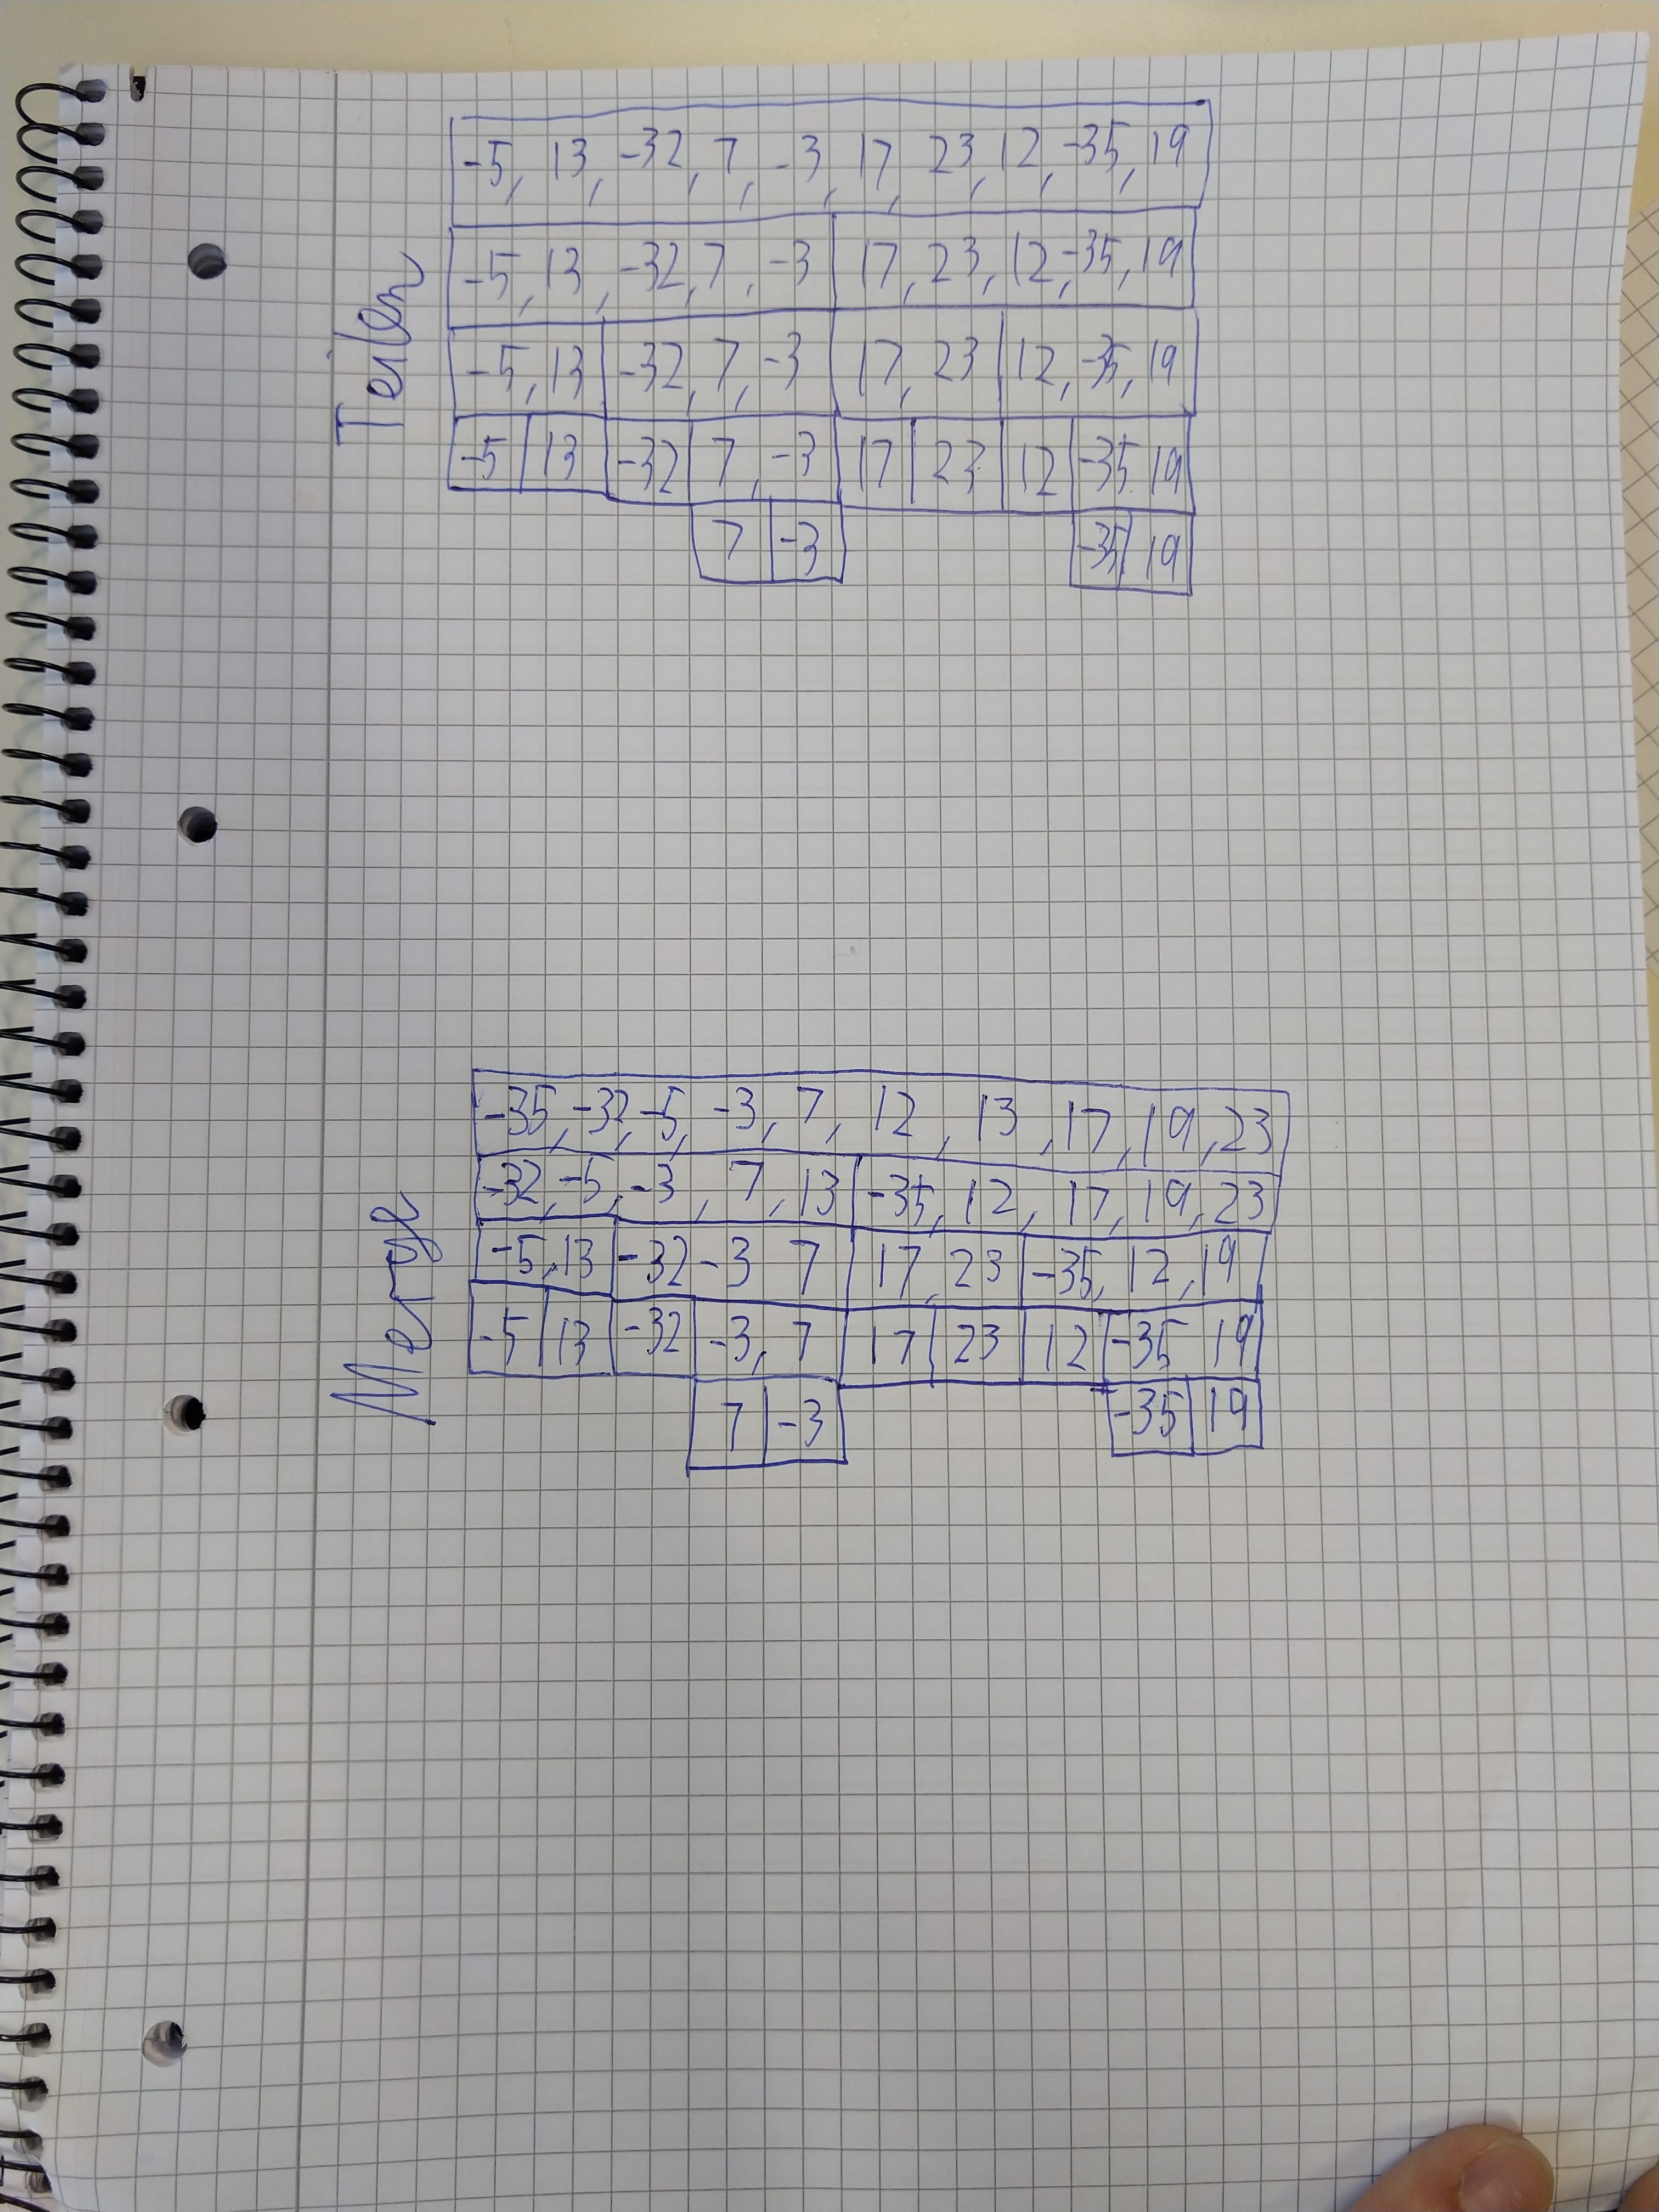 Teilen
-5, 13, -32, 7, -3, 17, 23, 12, -35, 19
-5, 13, -32, 7, -3 17, 23, 12, -35, 19
-5, 13 -32, 7, -3 17, 23 12, -35, 19
-5 13 -32 7, -3 17 23 12 -35 19
7 -3 -35 19
Merge
-35, -32, -5, -3, 7, 12, 13, 17, 19, 23
-32, -5, -3, 7, 13 -35, 12, 17, 19, 23
-5, 13 -32 -3 7 17, 23 -35, 12, 19
-5 13 -32 -3, 7 17 23 12 -35 19
7 -3 -35 19